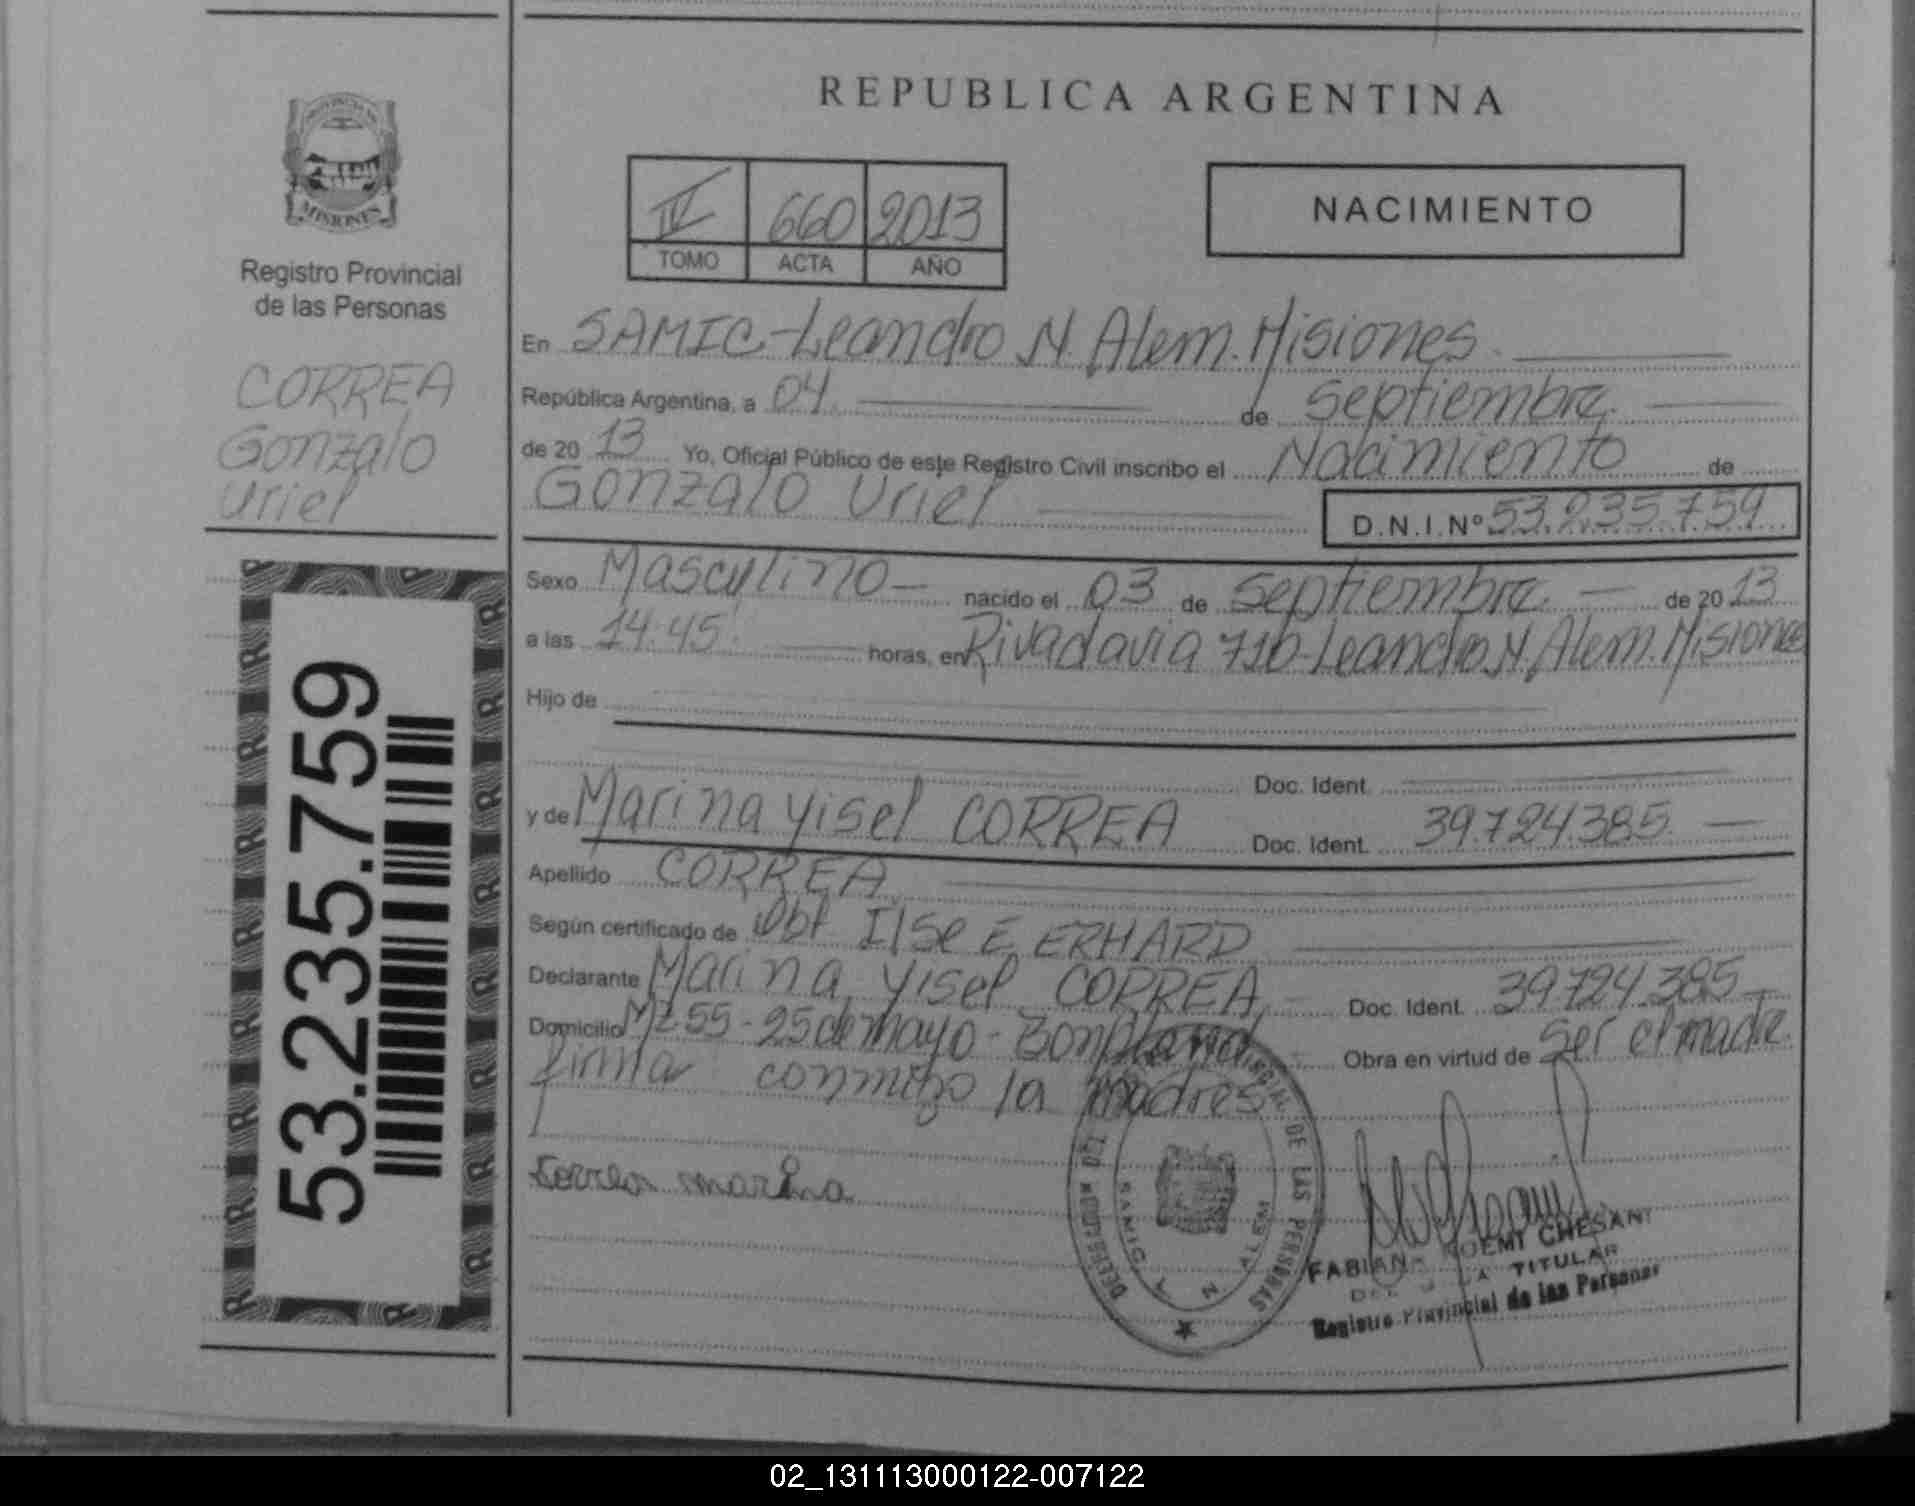 REPUBLICA ARGENTINA
PROVINCIA DE
MISIONES
Registro Provincial
de las Personas
CORREA
Gonzalo
Uriel
53.235.759
IV 660 2013
TOMO ACTA AÑO
NACIMIENTO
En SAMIC-Leandro N. Alem. Misiones.
República Argentina, a 04. de septiembre.
de 20 13 Yo, Oficial Público de este Registro Civil inscribo el Nacimiento de
Gonzalo Uriel D.N.I.Nº 53.235.759
Sexo Masculino nacido el 03 de septiembre. de 20 13
a las 14:45 horas, en Rivadavia 710-Leandro N. Alem. Misiones
Hijo de
Doc. Ident.
y de Marina Yisel CORREA Doc. Ident. 39.724.385.
Apellido CORREA
Según certificado de Obt Ilse E. ERHARD
Declarante Marina Yisel CORREA Doc. Ident. 39.724.385
Domicilio Mz 55 - 25 de mayo - Bonpland Obra en virtud de ser el madre.
firma conmigo la madres
Correa marina
PROVINCIAL DE LAS PERSONAS
SAMIC
N. ALEM
NOEMI CHESANI
TITULAR
Registro Provincial de las Personas
02_131113000122-007122